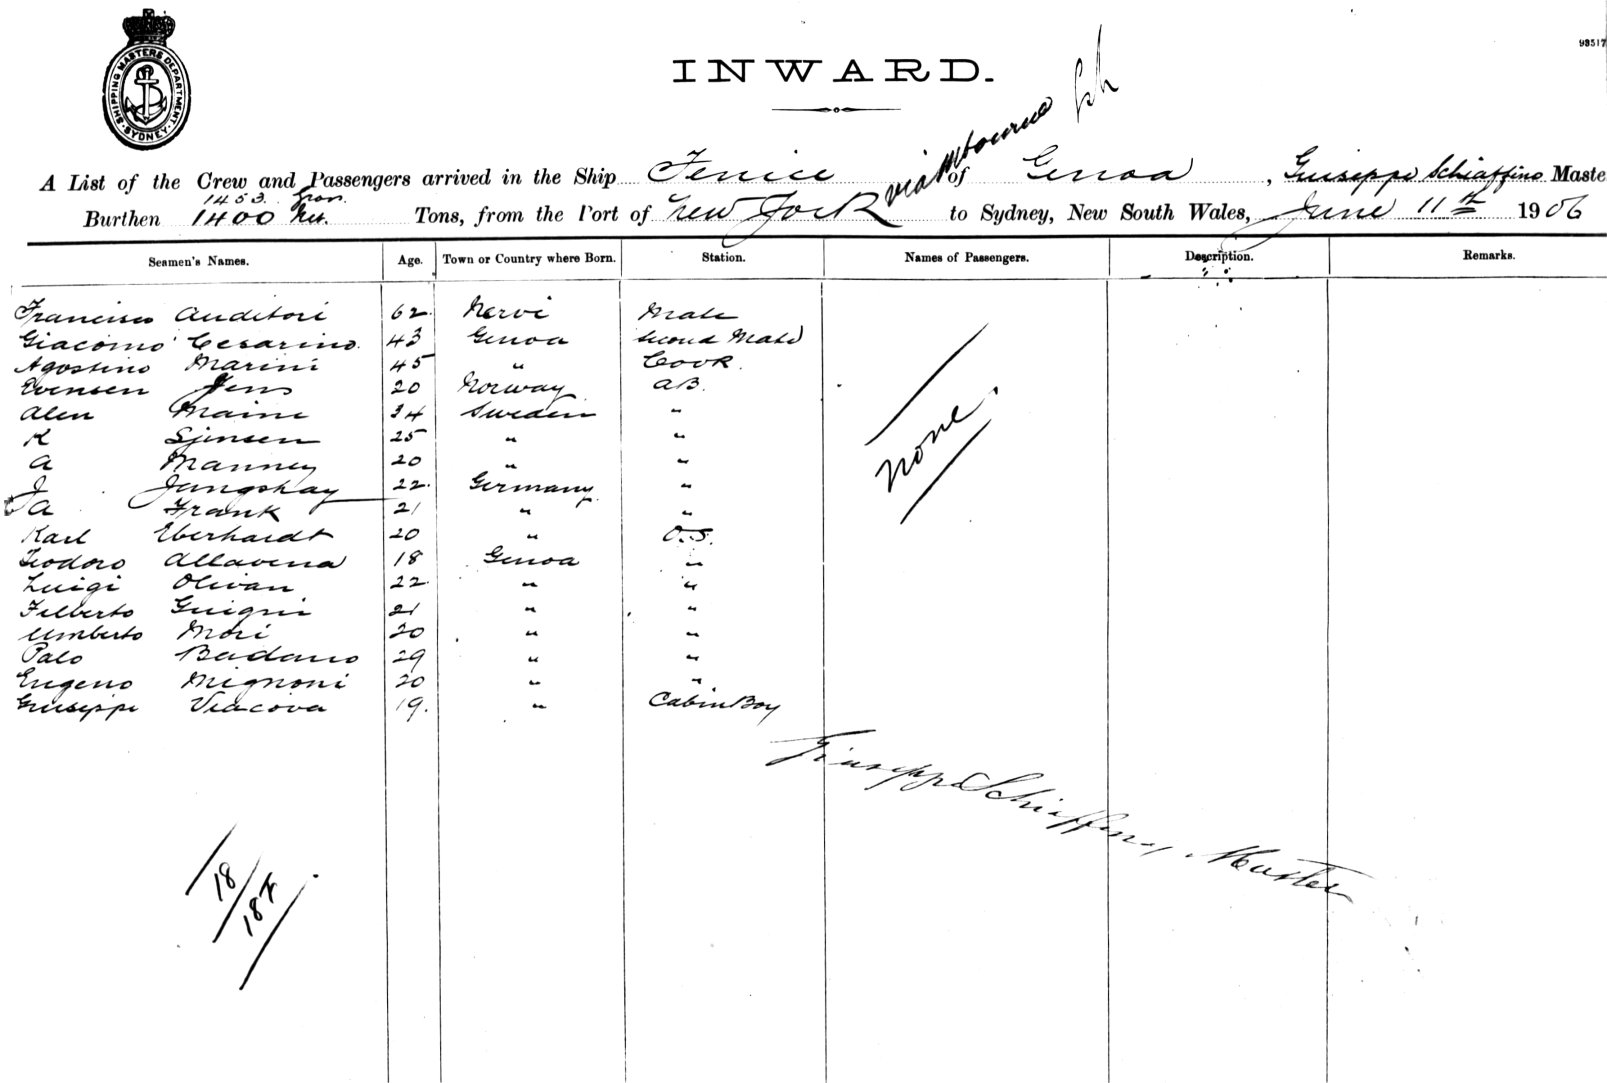 93517
SHIPPING MASTERS DEPARTMENT
SYDNEY
INWARD.
via Melbourne
A List of the Crew and Passengers arrived in the Ship Fenice of Genoa, Guiseppe Schiaffino Maste
1453 Gross
Burthen 1400 Net. Tons, from the Port of New York to Sydney, New South Wales, June 11th 1906
Seamen's Names. Age. Town or Country where Born. Station. Names of Passengers. Description. Remarks.
Francisco Auditori 62 Nervi Mate
Giacomo Cesarino 43 Genoa Second Mate
Agostino Marini 45 " Cook
Evensen Jens 20 Norway A.B.
Alen Maine 34 Sweden "
K Sjinsen 25 " "
A Manney 20 " "
J Jungshay 22 Germany "
A Frank 21 " "
Karl Eberhardt 20 " O.S.
Teodoro Allavena 18 Genoa "
Luigi Olivan 22 " "
Filberto Guigni 21 " "
Umberto Mori 20 " "
Palo Badano 29 " "
Eugeno Mignoni 20 " "
Giuseppi Viacova 19. " Cabin Boy
None.
Giuseppe Schiaffino, Master
18
18